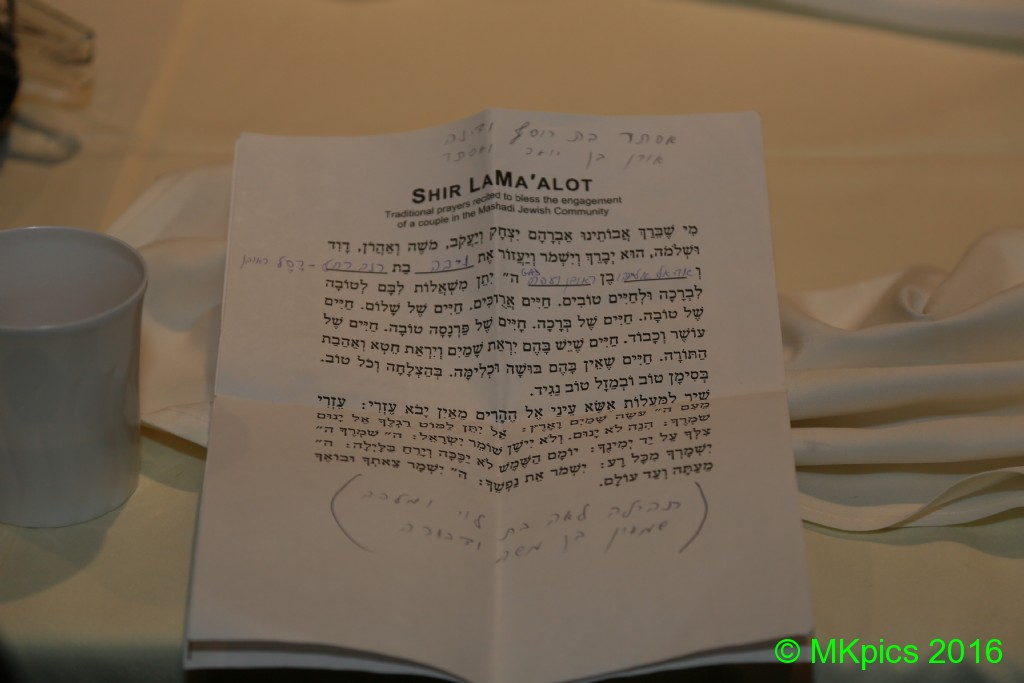 אסתר בת יוסף ודינה
אורן בן יואב ואסתר
SHIR LAMA'ALOT
Traditional prayers recited to bless the engagement
of a couple in the Mashadi Jewish Community
מִי שֶׁבֵּרַךְ אֲבוֹתֵינוּ אַבְרָהָם יִצְחָק וְיַעֲקֹב, מֹשֶׁה וְאַהֲרֹון, דָוִד
וּשְׁלֹמֹה, הוּא יְבָרֵךְ וְיִשְׁמֹר וְיַעֲזוֹר אֶת בַת
וְ בֶן ה״ יִתֵּן מִשְׁאֲלוֹת לִבָּם לְטוֹבָה
לִבְרָכָה וּלְחַיִּים טוֹבִים. חַיִּים אֲרֻוכִּים. חַיִּים שֶׁל שָׁלוֹם. חַיִּים
שֶׁל טוֹבָה. חַיִּים שֶׁל בְּרָכָה. חַיִּים שֶׁל פַּרְנָסָה טוֹבָה. חַיִּים שֶׁל
עוֹשֶׁר וְכָבוֹד. חַיִּים שֶׁיֵּשׁ בָּהֶם יִרְאַת שָׁמַיִם וְיִרְאַת חֵטְא וְאַהֲבַת
הַתּוֹרָה. חַיִּים שֶׁאֵין בָּהֶם בּוּשָׁה וּכְלִימָּה. בְּהַצְלָחָה וְכֹל טוֹב.
בְּסִימָן טוֹב וּבְמַזָּל טוֹב נַגִּיד.
שִׁיר לַמַּעֲלוֹת אֶשָּׂא עֵינַי אֶל הֶהָרִים מֵאַיִן יָבֹא עֶזְרִי: עֶזְרִי
מֵעִם ה״ עֹשֵׂה שָׁמַיִם וָאָרֶץ: אַל יִתֵּן לַמּוֹט רַגְלֶךָ אַל יָנוּם
שֹׁמְרֶךָ: הִנֵּה לֹא יָנוּם. וְלֹא יִישָׁן שׁוֹמֵר יִשְׂרָאֵל: ה״ שֹׁמְרֶךָ ה״
צִלְּךָ עַל יַד יְמִינֶךָ: יוֹמָם הַשֶּׁמֶשׁ לֹא יַכֶּכָּה וְיָרֵחַ בַּלָּיְלָה: ה״
יִשְׁמָרְךָ מִכָּל רָע: יִשְׁמֹר אֶת נַפְשֶׁךָ: ה״ יִשְׁמָר צֵאתְךָ וּבוֹאֶךָ
מֵעַתָּה וְעַד עוֹלָם.
תהילה לאה בת לוי ומלכה
שמעון בן משה ודבורה
© MKpics 2016